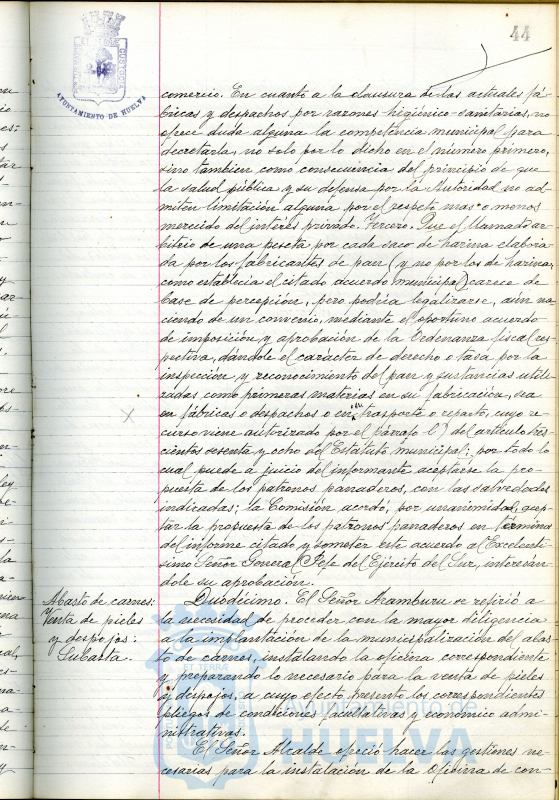 44
AYUNTAMIENTO DE HUELVA
comercio. En cuanto a la clausura de las actuales fá-
bricas y despachos por razones higiénico-sanitarias, no
ofrece duda alguna la competencia municipal para
decretarla, no solo por lo dicho en el número primero,
sino tambien como consecuencia del principio de que
la salud pública y su defensa por la Autoridad no ad-
miten limitación alguna por el respeto mas o menos
merecido del interés privado. Tercero. Que el llamado ar-
bitrio de una peseta por cada saco de harina elabora-
da por los fabricantes de pan (y no por los de harina,
como establecia el citado acuerdo municipal) carece de
base de percepción, pero podria legalizarse, aun na-
ciendo de un convenio, mediante el oportuno acuerdo
de imposición y aprobación de la Ordenanza fiscal res-
pectiva, dandole el carácter de derecho o tasa por la
inspección y reconocimiento del pan y sustancias utili-
zadas como primeras materias en su fabricación, sea
en fábricas o despachos o en su trasporte o reparto, cuyo re-
curso viene autorizado por el párrafo l) del artículo tres-
cientos sesenta y ocho del Estatuto municipal; por todo lo
cual puede a juicio del informante aceptarse la pro-
puesta de los patronos panaderos, con las salvedades
indicadas; la Comisión acordó, por unanimidad, acep-
tar la propuesta de los patronos panaderos en términos
del informe citado y someter este acuerdo al Excelentí-
simo Señor General Jefe del Ejército del Sur, interesan-
dole su aprobación.
Abasto de carnes:
Venta de pieles
y despojos:
Subasta.
Duodécimo. El Señor Aramburu se refirió a
la necesidad de proceder con la mayor diligencia
a la implantación de la municipalización del abas-
to de carnes, instalando la oficina correspondiente
y preparando lo necesario para la venta de pieles
y despojos, a cuyo efecto presentó los correspondientes
pliegos de condiciones facultativas y económico admi-
nistrativas.
El Señor Alcalde ofreció hacer las gestiones ne-
cesarias para la instalación de la Oficina de con-
Ayuntamiento de
HUELVA